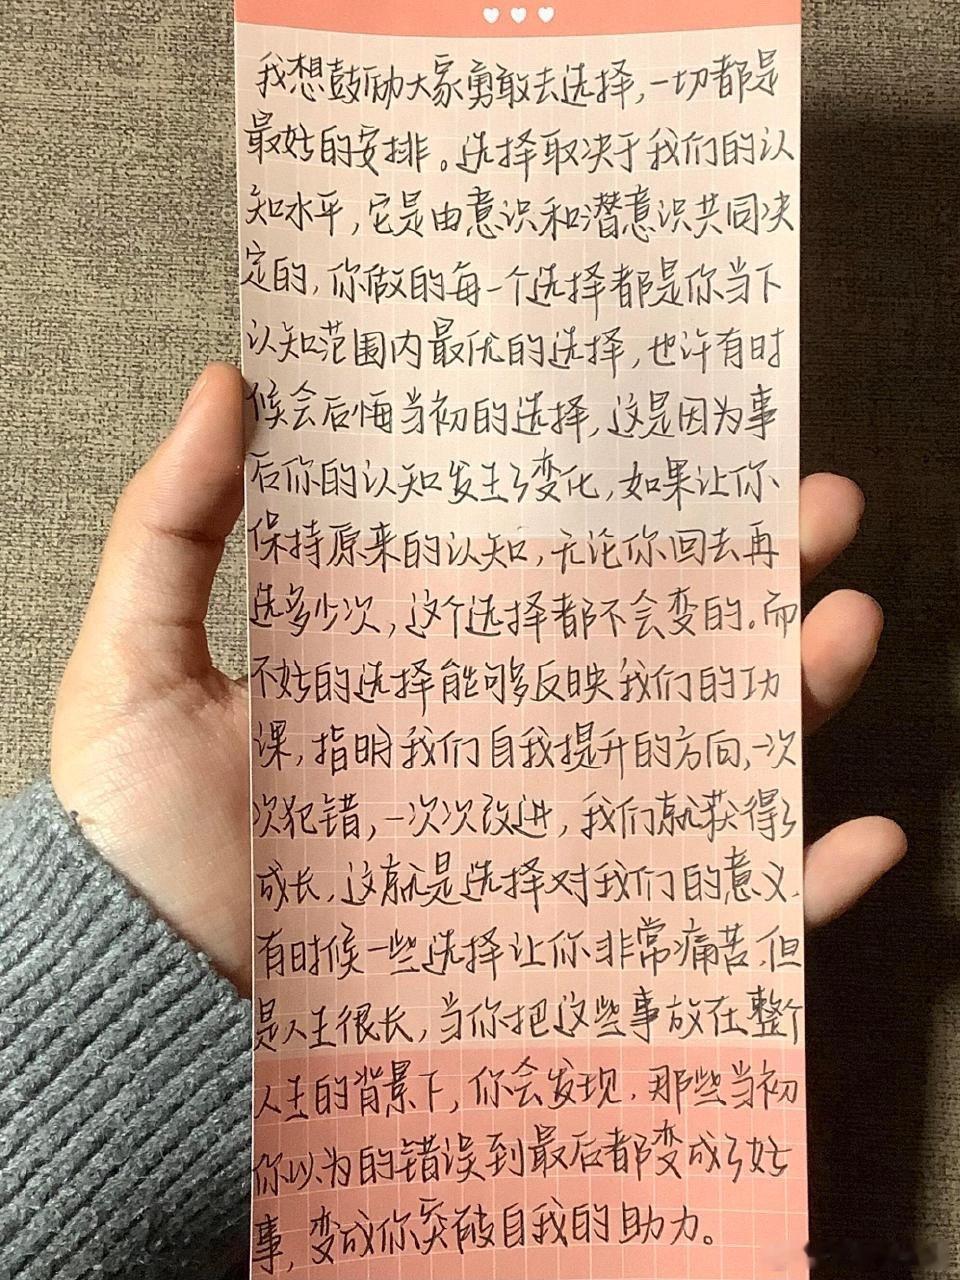 我想鼓励大家勇敢去选择,一切都是
最好的安排。选择取决于我们的认
知水平,它是由意识和潜意识共同决
定的,你做的每一个选择都是你当下
认知范围内最优的选择,也许有时
候会后悔当初的选择,这是因为事
后你的认知发生了变化,如果让你
保持原来的认知,无论你回去再
选多少次,这个选择都不会变的。而
不好的选择能够反映我们的功
课,指明我们自我提升的方向,一次
次犯错,一次次改进,我们就获得了
成长,这就是选择对我们的意义,
有时候一些选择让你非常痛苦,但
是人生很长,当你把这些事放在整个
人生的背景下,你会发现,那些当初
你以为的错误到最后都变成了好
事,变成你突破自我的助力。